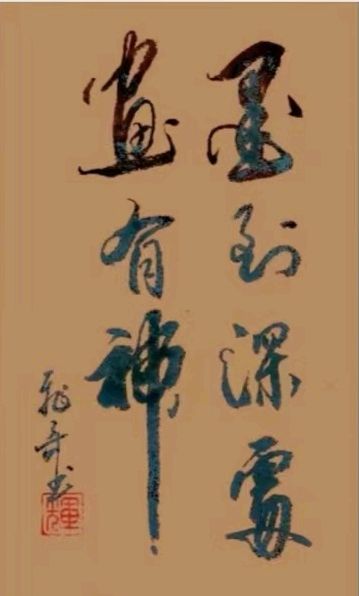 墨到深處
畫有神